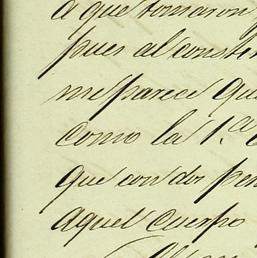 a que tomaron
pues al consti
me parece que
como la 1.ª
que con dos pen
aquel Cuerpo